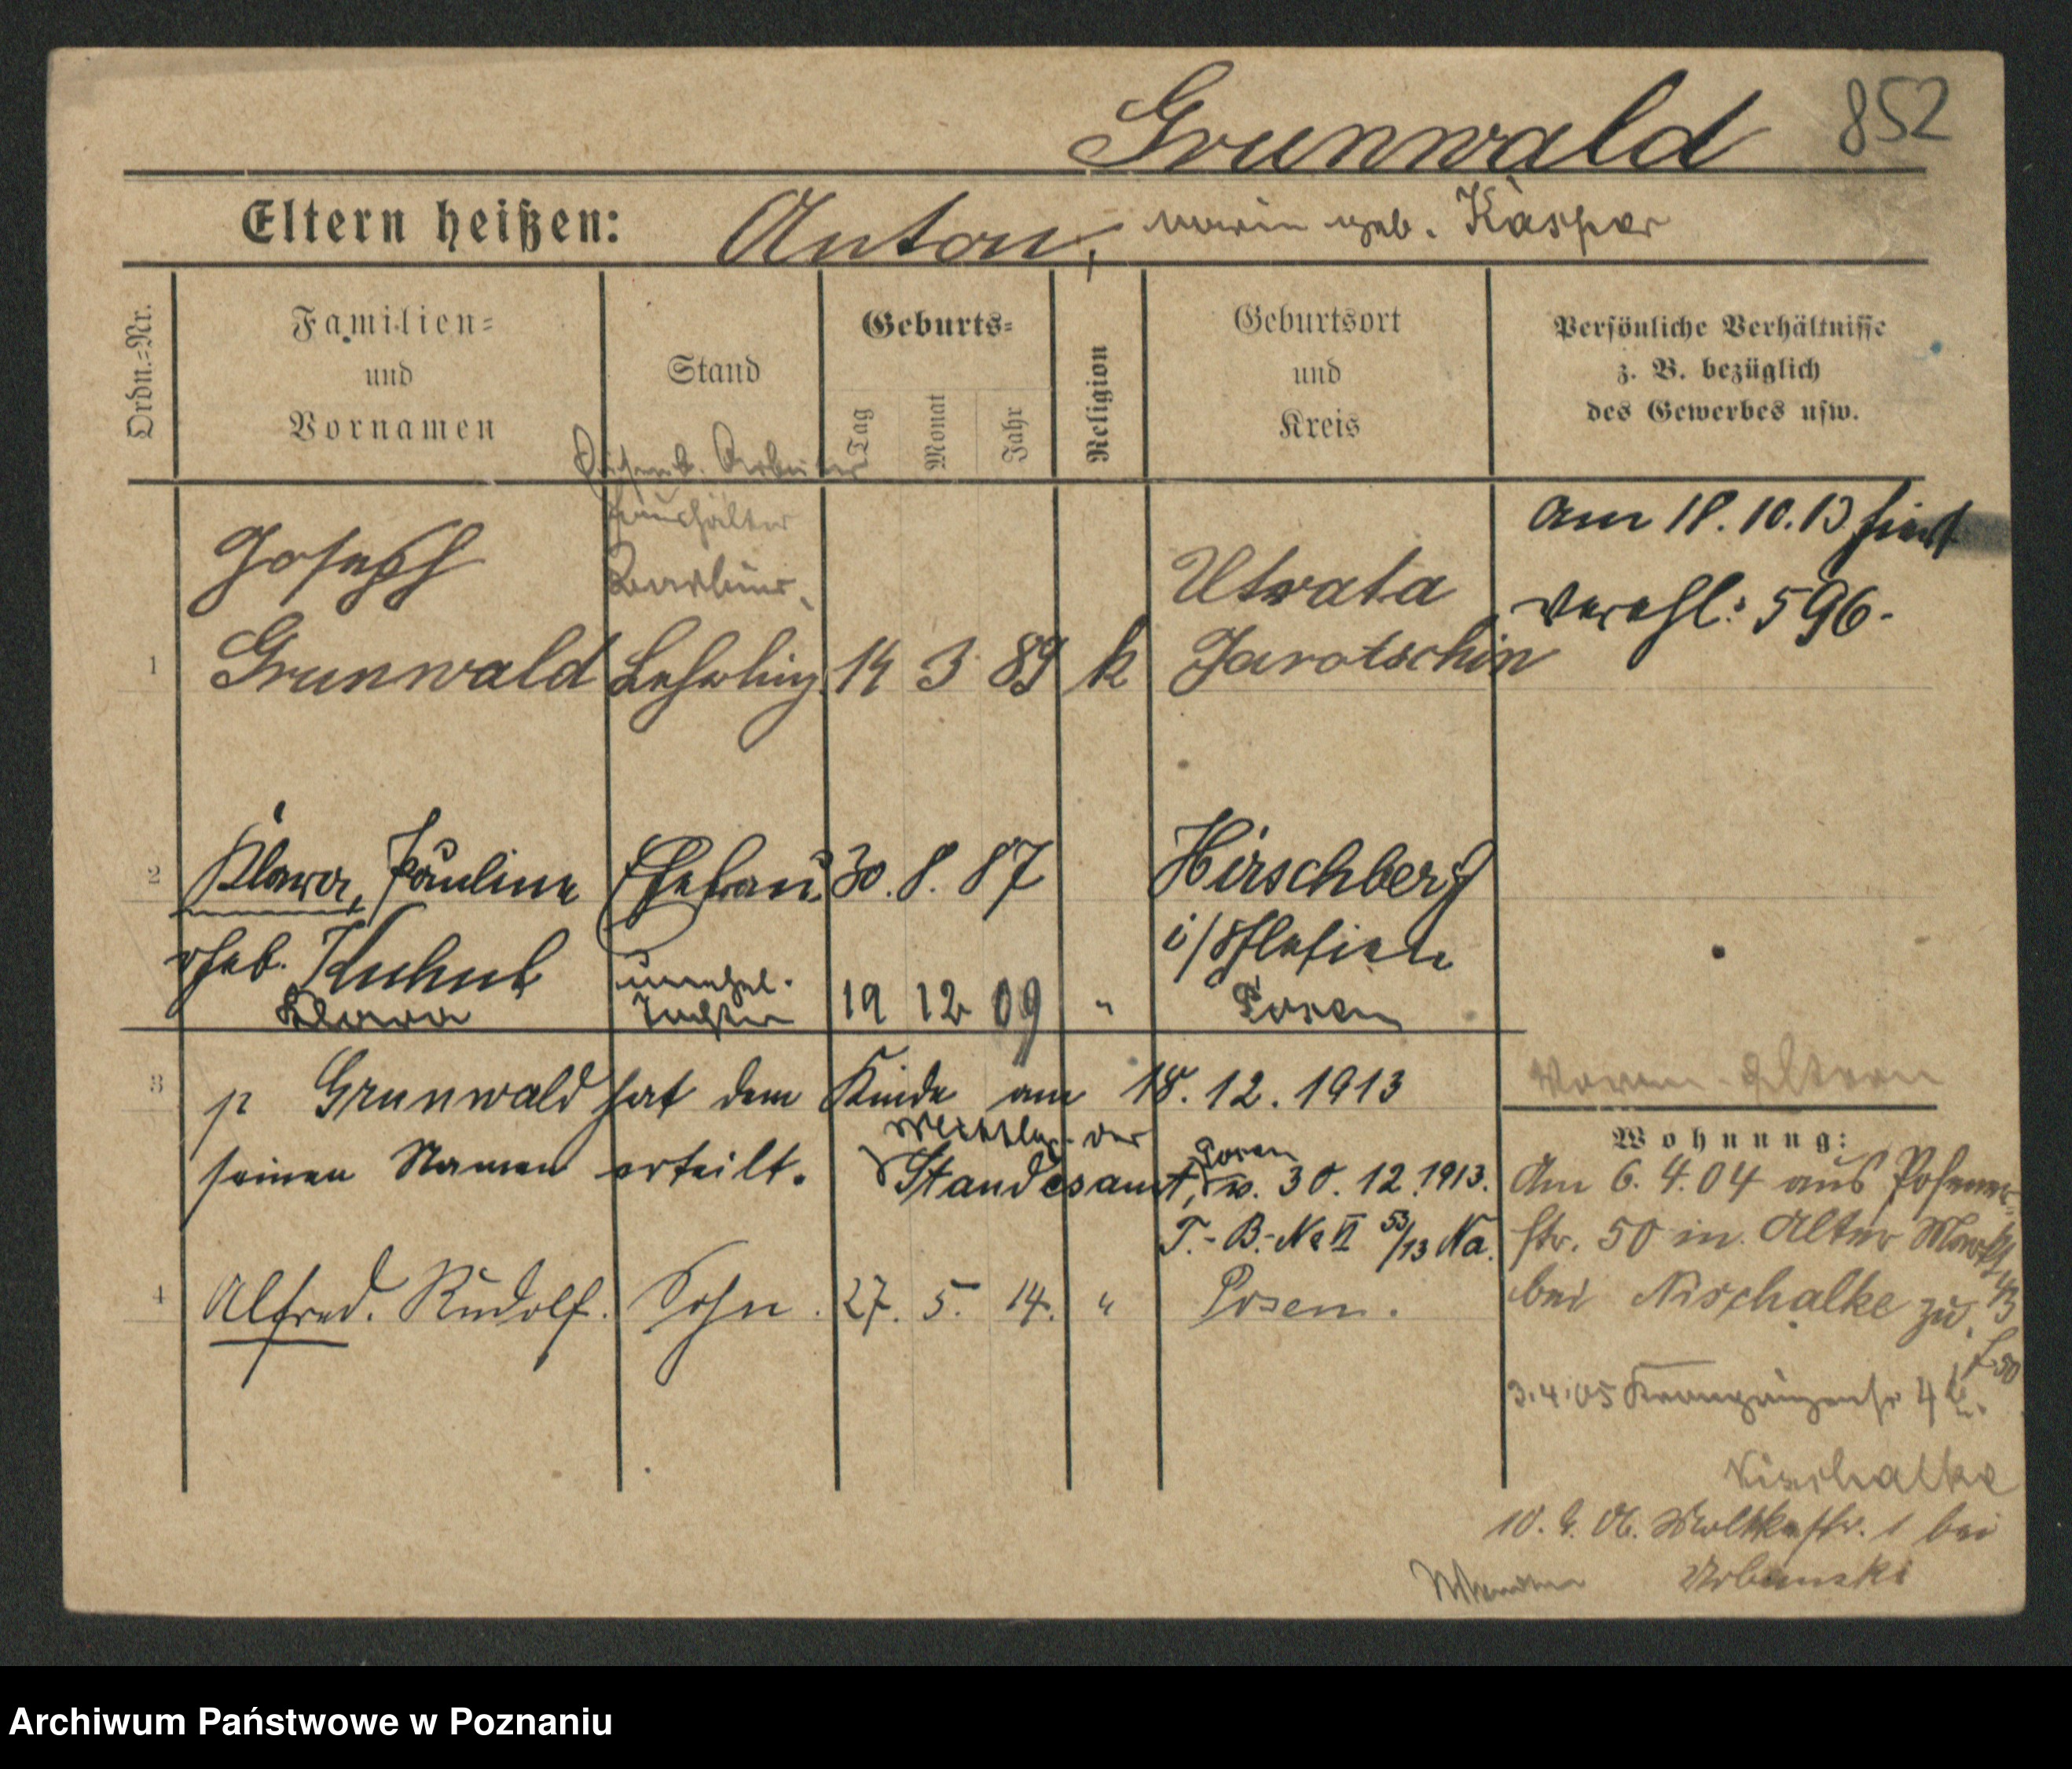 Grunwald 852
Eltern heißen: Anton, geb. Kaspar
Ordn.=Nr.
Familien=
und
Vornamen
Stand
Geburts=
Tag
Monat
Jahr
Religion
Geburtsort
und
Kreis
Persönliche Verhältnisse
z. B. bezüglich
des Gewerbes usw.
Haushälter
1 Joseph
Grunwald Lehrling 14 3 89 k Utrata
Jarotschin
am 18.10.13 hier
verehl: 596.
2 Klara, Pauline Ehefrau 30. 8. 87 Hirschberg
geb. Kuhnt i/Schlesien
Klara unehel.
Tochter 19 12 09 " Posen
3 p Grunwald hat dem Kinde am 18. 12. 1913
seinen Namen erteilt. der
Standesamt, Posen v. 30. 12. 1913.
T.-B.-No II 53/13 Na.
4 Alfred. Rudolf. Sohn. 27. 5. 14. " Posen.
Wohnung:
Am 6. 4. 04 aus Posener
str. 50 in Alter Markt
bei Nischalke zu.
3.4.05 4
Nischalke
10. 4. 06. Moltkestr. 1 bei
Urbanski
Archiwum Państwowe w Poznaniu